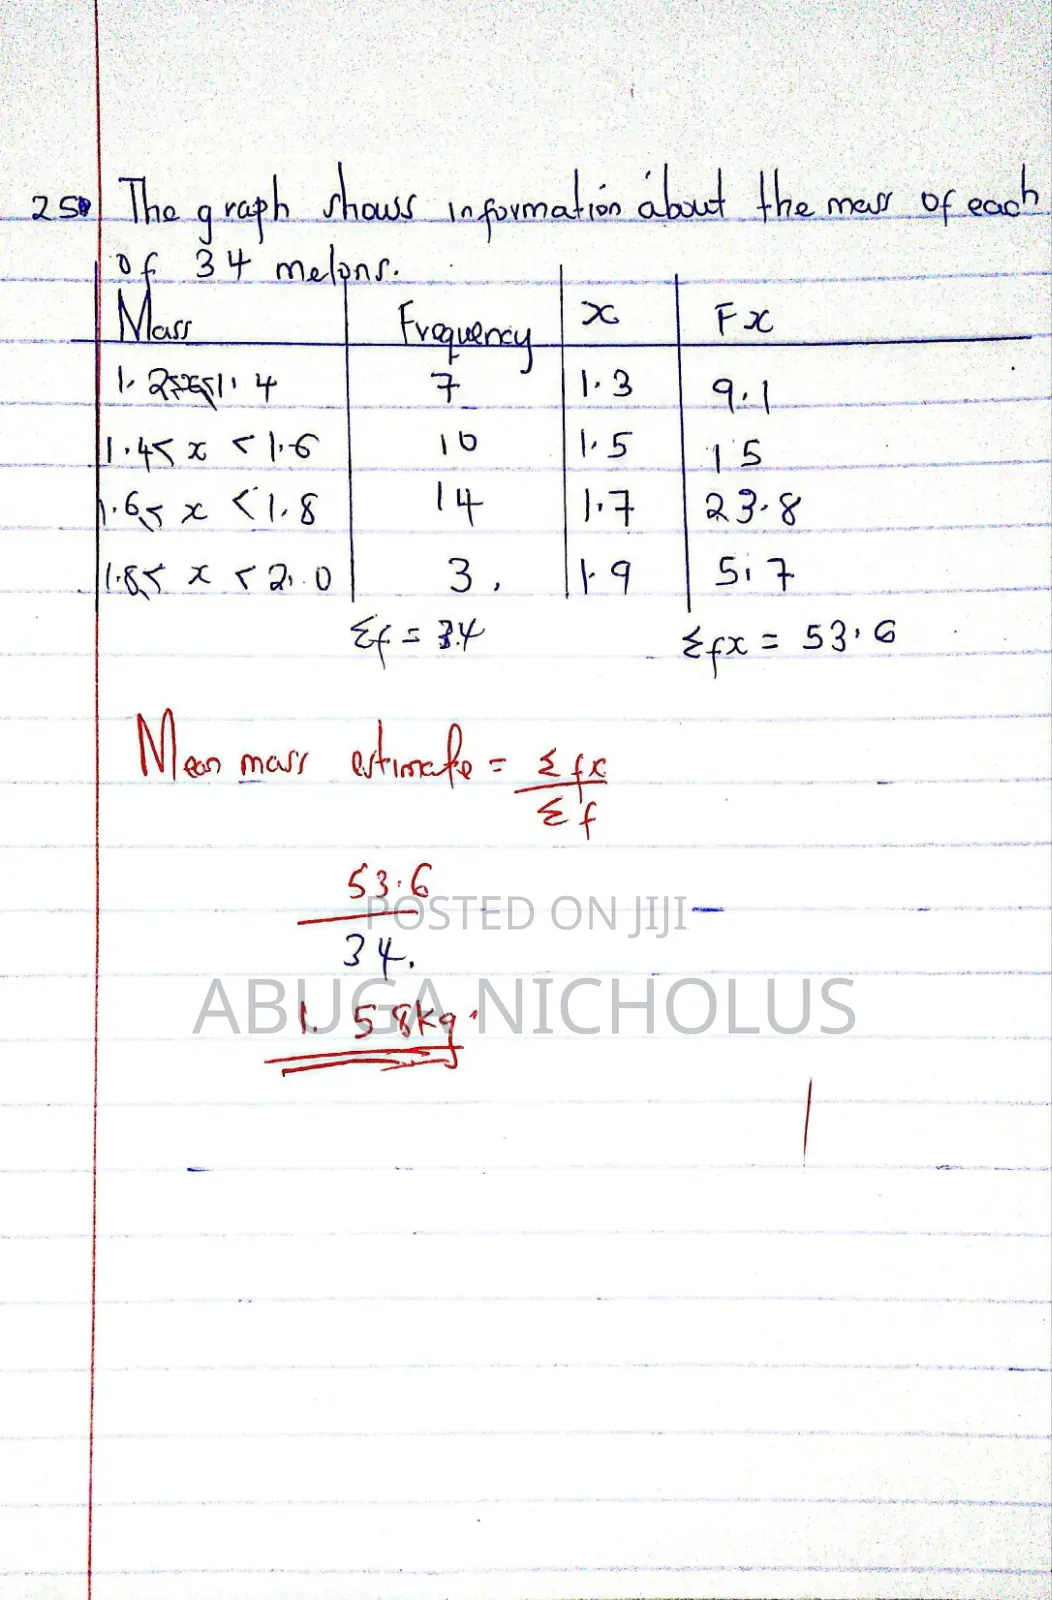 25 The graph shows information about the mass of each
of 34 melons.
Mass Frequency x Fx
1.2 1.4 7 1.3 9.1
1.4≤ x < 1.6 10 1.5 15
1.6≤ x < 1.8 14 1.7 23.8
1.8≤ x < 2.0 3. 1.9 5.7
Σf = 34 Σfx = 53.6
Mean mass estimate = Σfx
Σf
53.6
POSTED ON JIJI
34.
ABUGA NICHOLUS
1.58kg.